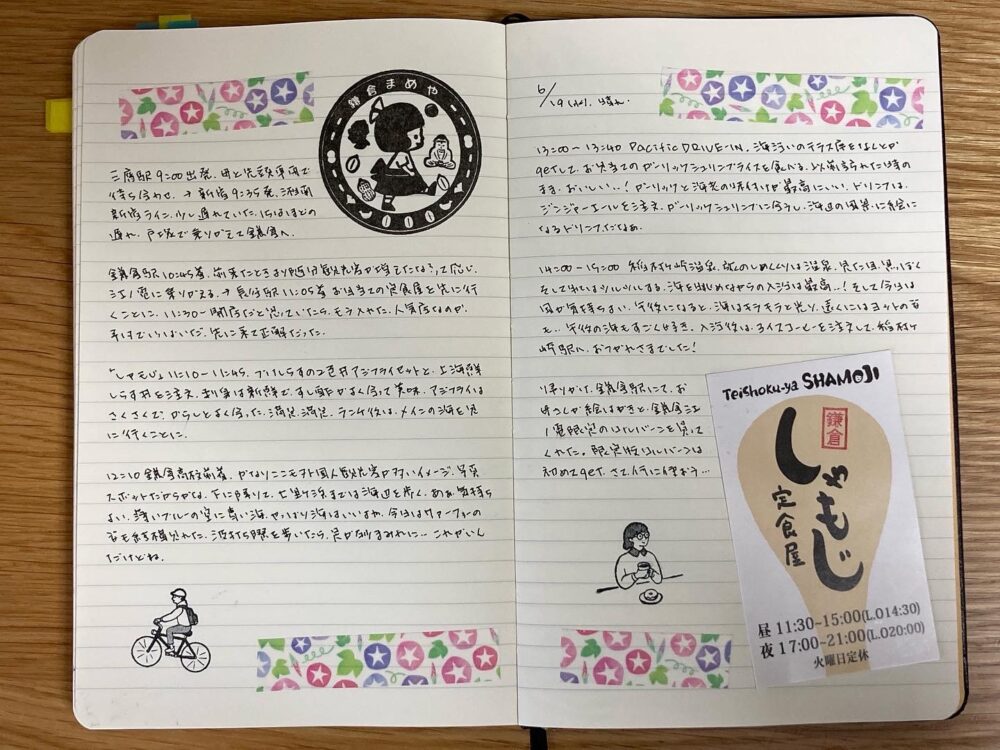 鎌倉まめや
三鷹駅 9:00出発。母と先頭車両で
待ち合わせ。→新宿9:35発、湘南
新宿ライン。少し遅れていた。15分ほどの
遅れ。戸塚で乗りかえて鎌倉へ。
鎌倉駅10:45着。前来たときより随分観光客が増えたな?って感じ。
江ノ電に乗りかえる。→長谷駅11:05着 お目当ての定食屋と先に行
くことに。11:30〜開店だと思っていたら、もう入れた。人気店なのか、
先に来て正解だった。
「しゃもじ」11:10〜11:45。アジフライセットと、上海鮮
しらす丼を注文。お刺身は新鮮で、すし酢がよく合って美味。アジフライは
さくさくで、からしとよく合った。満足、満足。ランチ後は、メインの海を見
に行くことに。
12:10 鎌倉高校前着。かなりここも外国人観光客が多いイメージ。写真
スポットだからかな。下に降りて、七里ヶ浜までは海辺を歩く。あぁ気持ち
よい。薄いブルーの空に青い海。やっぱり海はいいねぇ。今日はサーファーの
方も結構見れた。波打ち際を歩いたら、足が砂まみれに… これがいい
んだけどね。
6/19 晴れ。
13:00〜13:40 PACIFIC DRIVE-IN。海沿いのテラス席をなんとか
getして、お目当てのガーリックシュリンプライスを食べる。以前食べた時の
まま、おいしい…!ガーリックと海老の味付けが最高にいい。ドリンクは、
ジンジャーエールを注文。ガーリックシュリンプに合うし、海辺の風景に絵に
なるドリンクだなぁ。
14:00〜15:00 稲村ヶ崎温泉。旅のしめくくりは温泉。見た目、黒っぽく
そして出ているツルツルする。海を眺めながらの入浴は最高…!そして今日は
風が気持ちよい。午後になると、海はキラキラと光り、遠くにはヨットの方
も…午後の海もすごく好き。入浴後は、アイスコーヒーを注文して、稲村ヶ
崎駅へ。おつかれさまでした!
帰りがけ、鎌倉駅にて、お
母さんが絵はがきと、鎌倉江
ノ電限定のロルバーンを買って
くれた。限定版ロルバーンは
初めてget。さて、何に使おう…
Teishoku-ya SHAMOJI
鎌倉
しゃもじ
定食屋
昼 11:30~15:00(L.O14:30)
夜 17:00~21:00(L.O20:00)
火曜日定休